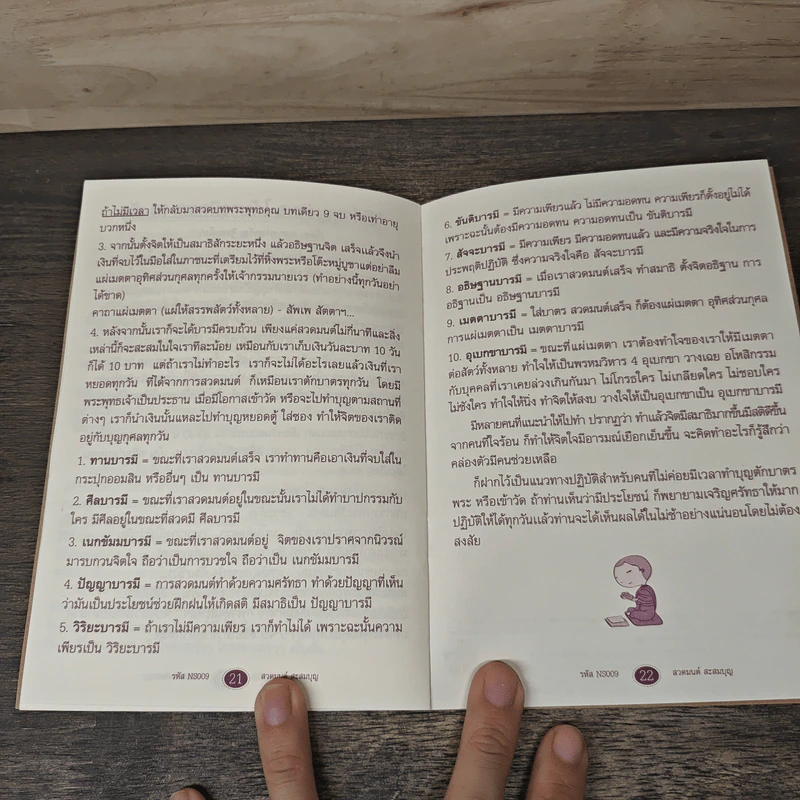 ถ้าไม่มีเวลา ให้กลับมาสวดบทพระพุทธคุณ บทเดียว 9 จบ หรือเท่าอายุ
บวกหนึ่ง
3. จากนั้นตั้งจิตให้เป็นสมาธิสักระยะหนึ่ง แล้วอธิษฐานจิต เสร็จแล้วจึงนำ
เงินที่จบไว้ในมือใส่ในภาชนะที่เตรียมไว้ที่หิ้งพระหรือโต๊ะหมู่บูชาแต่อย่าลืม
แผ่เมตตาอุทิศส่วนกุศลทุกครั้งให้เจ้ากรรมนายเวร (ทำอย่างนี้ทุกวันอย่า
ได้ขาด)
คาถาแผ่เมตตา (แผ่ให้สรรพสัตว์ทั้งหลาย) - สัพเพ สัตตาฯ...
4. หลังจากนั้นเราก็จะได้บารมีครบถ้วน เพียงแค่สวดมนต์ไม่กี่นาทีและสิ่ง
เหล่านี้ก็จะสะสมในใจเราทีละน้อย เหมือนกับเราเก็บเงินวันละบาท 10 วัน
ก็ได้ 10 บาท แต่ถ้าเราไม่ทำอะไร เราก็จะไม่ได้อะไรเลยแล้วเงินที่เรา
หยอดทุกวัน ที่ได้จากการสวดมนต์ ก็เหมือนเราตักบาตรทุกวัน โดยมี
พระพุทธเจ้าเป็นประธาน เมื่อมีโอกาสเข้าวัด หรือจะไปทำบุญตามสถานที่
ต่างๆ เราก็นำเงินนั้นแหละไปทำบุญหยอดตู้ ใส่ซอง ทำให้จิตของเราติด
อยู่กับบุญกุศลทุกวัน
1. ทานบารมี = ขณะที่เราสวดมนต์เสร็จ เราทำทานคือเอาเงินที่จบใส่ใน
กระปุกออมสิน หรืออื่นๆ เป็น ทานบารมี
2. ศีลบารมี = ขณะที่เราสวดมนต์อยู่ในขณะนั้นเราไม่ได้ทำบาปกรรมกับ
ใคร มีศีลอยู่ในขณะที่สวดมี ศีลบารมี
3. เนกขัมมบารมี = ขณะที่เราสวดมนต์อยู่ จิตของเราปราศจากนิวรณ์
มารบกวนจิตใจ ถือว่าเป็นการบวชใจ ถือว่าเป็น เนกขัมมบารมี
4. ปัญญาบารมี = การสวดมนต์ทำด้วยความศรัทธา ทำด้วยปัญญาที่เห็น
ว่ามันเป็นประโยชน์ช่วยฝึกฝนให้เกิดสติ มีสมาธิเป็น ปัญญาบารมี
5. วิริยะบารมี = ถ้าเราไม่มีความเพียร เราก็ทำไม่ได้ เพราะฉะนั้นความ
เพียรเป็น วิริยะบารมี
รหัส NS009 21 สวดมนต์ สะสมบุญ
6. ขันติบารมี = มีความเพียรแล้ว ไม่มีความอดทน ความเพียรก็ตั้งอยู่ไม่ได้
เพราะฉะนั้นต้องมีความอดทน ความอดทนเป็น ขันติบารมี
7. สัจจะบารมี = มีความเพียร มีความอดทนแล้ว และมีความจริงใจในการ
ประพฤติปฏิบัติ ซึ่งความจริงใจคือ สัจจะบารมี
8. อธิษฐานบารมี = เมื่อเราสวดมนต์เสร็จ ทำสมาธิ ตั้งจิตอธิฐาน การ
อธิฐานเป็น อธิษฐานบารมี
9. เมตตาบารมี = ใส่บาตร สวดมนต์เสร็จ ก็ต้องแผ่เมตตา อุทิศส่วนกุศล
การแผ่เมตตาเป็น เมตตาบารมี
10. อุเบกขาบารมี = ขณะที่แผ่เมตตา เราต้องทำใจของเราให้มีเมตตา
ต่อสัตว์ทั้งหลาย ทำใจให้เป็นพรหมวิหาร 4 อุเบกขา วางเฉย อโหสิกรรม
กับบุคคลที่เราเคยล่วงเกินกันมา ไม่โกรธใคร ไม่เกลียดใคร ไม่ชอบใคร
ไม่ชังใคร ทำใจให้นิ่ง ทำจิตให้สงบ วางใจให้เป็นอุเบกขาเป็น อุเบกขาบารมี
มีหลายคนที่แนะนำให้ไปทำ ปรากฏว่า ทำแล้วจิตมีสมาธิมากขึ้นมีสติดีขึ้น
จากคนที่ใจร้อน ก็ทำให้จิตใจมีอารมณ์เยือกเย็นขึ้น จะคิดทำอะไรก็รู้สึกว่า
คล่องตัวมีคนช่วยเหลือ
ก็ฝากไว้เป็นแนวทางปฏิบัติสำหรับคนที่ไม่ค่อยมีเวลาทำบุญตักบาตร
พระ หรือเข้าวัด ถ้าท่านเห็นว่ามีประโยชน์ ก็พยายามเจริญศรัทธาให้มาก
ปฏิบัติให้ได้ทุกวันแล้วท่านจะได้เห็นผลได้ในไม่ช้าอย่างแน่นอนโดยไม่ต้อง
สงสัย
รหัส NS009 22 สวดมนต์ สะสมบุญ